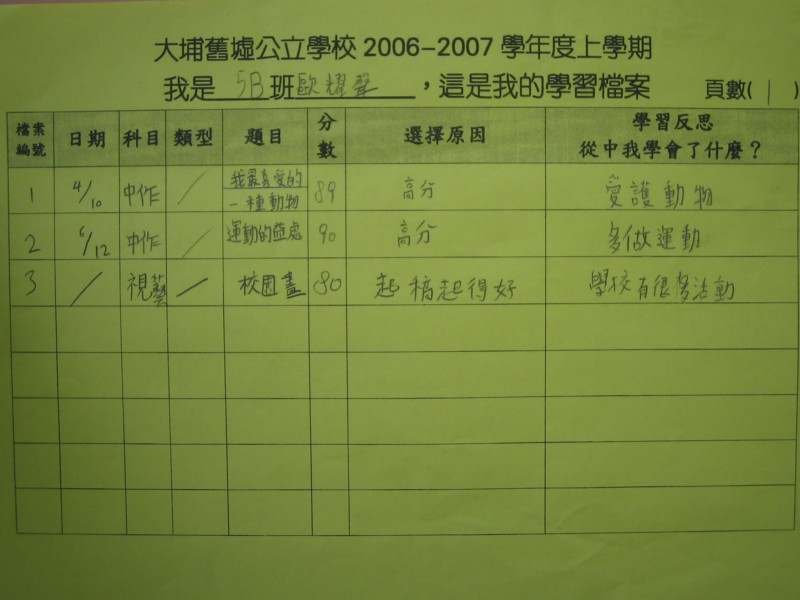 大埔舊墟公立學校 2006–2007 學年度上學期
我是 5B 班 歐耀聲 ，這是我的學習檔案 頁數( 1 )
檔案編號 日期 科目 類型 題目 分數 選擇原因 學習反思 從中我學會了什麼？
1 4/10 中作 / 我最喜愛的一種動物 89 高分 愛護動物
2 6/12 中作 / 運動的益處 90 高分 多做運動
3 / 視藝 / 校園畫 80 起稿起得好 學校有很多活動